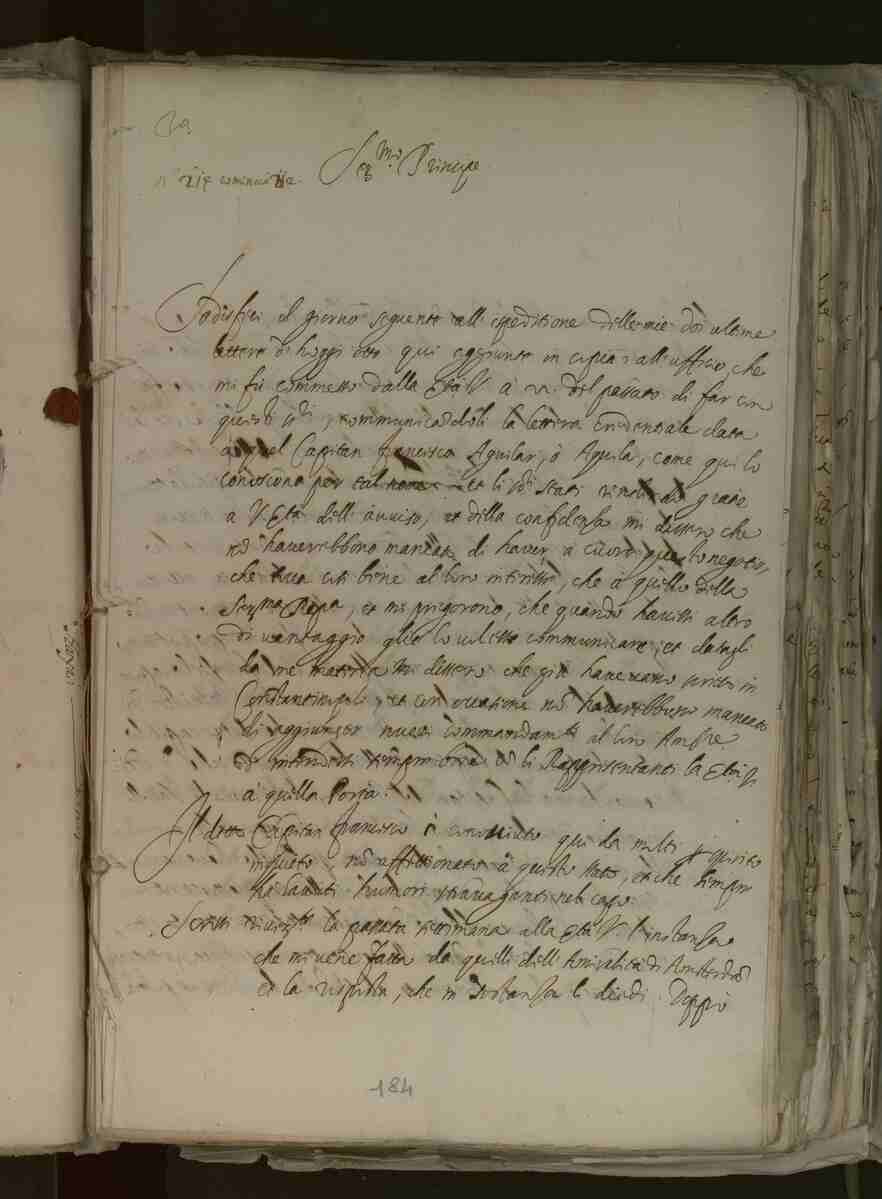 n.° 214 cominciata
Ser.mo Principe
Sodisfeci il giorno seguente all espeditione delle mie doi ultime
lettere di hoggi otto qui aggiunte in all'ufficio, che
mi fù commesso dalla Ser.tà V. a vi. del passato di far con
questi SS.ri, communicandoli la lettera Credentiale data
à quel Capitan Francesco Aguilar, ò Aquila, come qui lo
conoscono per tal nome. et li SS.ri Stati rendendo gratie
a V. Ser.tà dell avviso, et della confidenza mi dissero che
nò haverebbono mancato di haver à cuore questo negotio,
che era così bene al loro interesse, che à quello della
Ser.ma Rep.a, et mi pregorono, che quando havessi altro
di vantaggio glie lo volessi communicare, et datagli
da me materia mi dissero che già havevano scritto in
Constantinopoli, et con occasione nò haverebbono mancato
di aggiunger novi commandam.ti al loro Amb.re
d'intendersi sempre bene cò li Rappresentanti la Ser.tà V.
à quella Porta.
Il detto Capitan Francesco è conosciuto qui da molti p spirito
inquieto, nò affettionato à questo stato, et che sempre
ha havuti humori stravaganti nel capo.
Scrissi river.te la passata settimana alla Ser.tà V. l'instanza
che mi vene fatta da quelli dell'Amiralità di Amsterdà
et la risposta, che in sostanza li diedi. Doppò
184